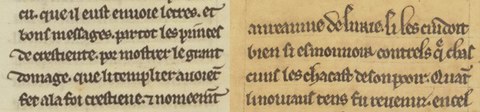 cu. que il eust enuoie letres. et
bons messages. par tot les princes
de crestiente. por mostrer le grant
domage. que li templier auoient
fet a la foi crestiene. & nomeemt
au reaume de surie. si les cuidoit
bien si esmouuoir contrels q̃ chas
cuns les chacast de son pooir. Quãt
li nouiaus tens fu reuenuz. en cel